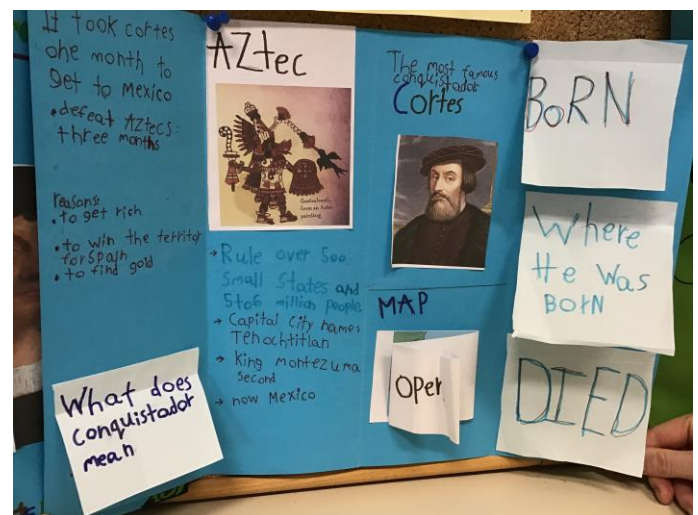 It took cortes
one month to
get to Mexico
• defeat Aztecs:
three months
reasons:
• to get rich
• to win the territor
for Spain
• to find gold
What does
conquistador
mean
AZtec
Quetzalcoatl,
from an Aztec
painting
→ Rule over 500
Small States and
5to6 million people
→ Capital City names
Tenochtitlan
→ king montezuma
second
→ now Mexico
The most famous
conquistador
Cortes
MAP
Open
BORN
Where
He Was
BORN
DIED